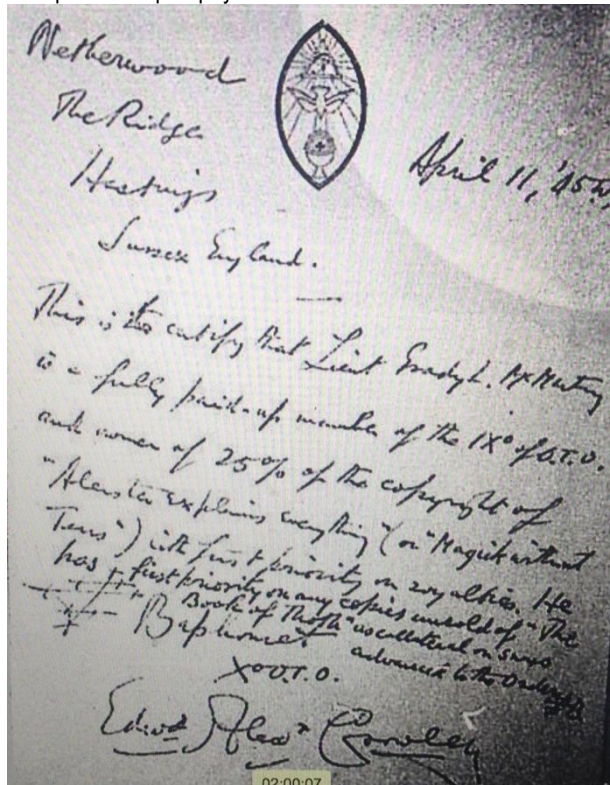 Netherwood
The Ridge
Hastings
Sussex England.
April 11, '45
This is to certify that Lieut Grady L. McMurtry
is a fully paid-up member of the IX° of O.T.O.
and owner of 25% of the copyright of
"Aleister Explains Everything" (or "Magick without
Tears") with first priority on royalties. He
has first priority on any copies unsold of "The
Book of Thoth" as collateral on sums
advanced to the Order
Baphomet
X° O.T.O.
Edwd Alexr Crowley
02:00:07